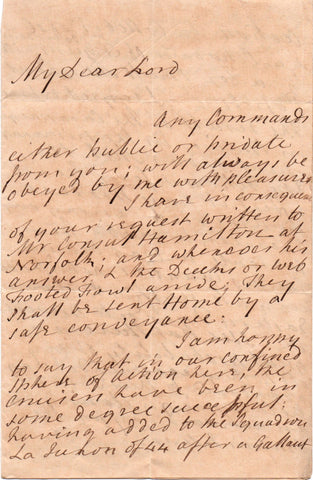 My Dear Lord
Any Commands
either public or private
from you; will always be
obeyed by me with pleasure
I have in consequence
of your request written to
Mr Consul Hamilton at
Norfolk: and whenever his
answer & the Ducks or Web
Footed Fowl arrive, They
shall be sent Home by a
safe conveyance:
I am happy
to say that in our confined
sphere of Action here, the
cruisers have been in
some degree successful:
having added to the Squadron
La Junon of 44 after a Gallant